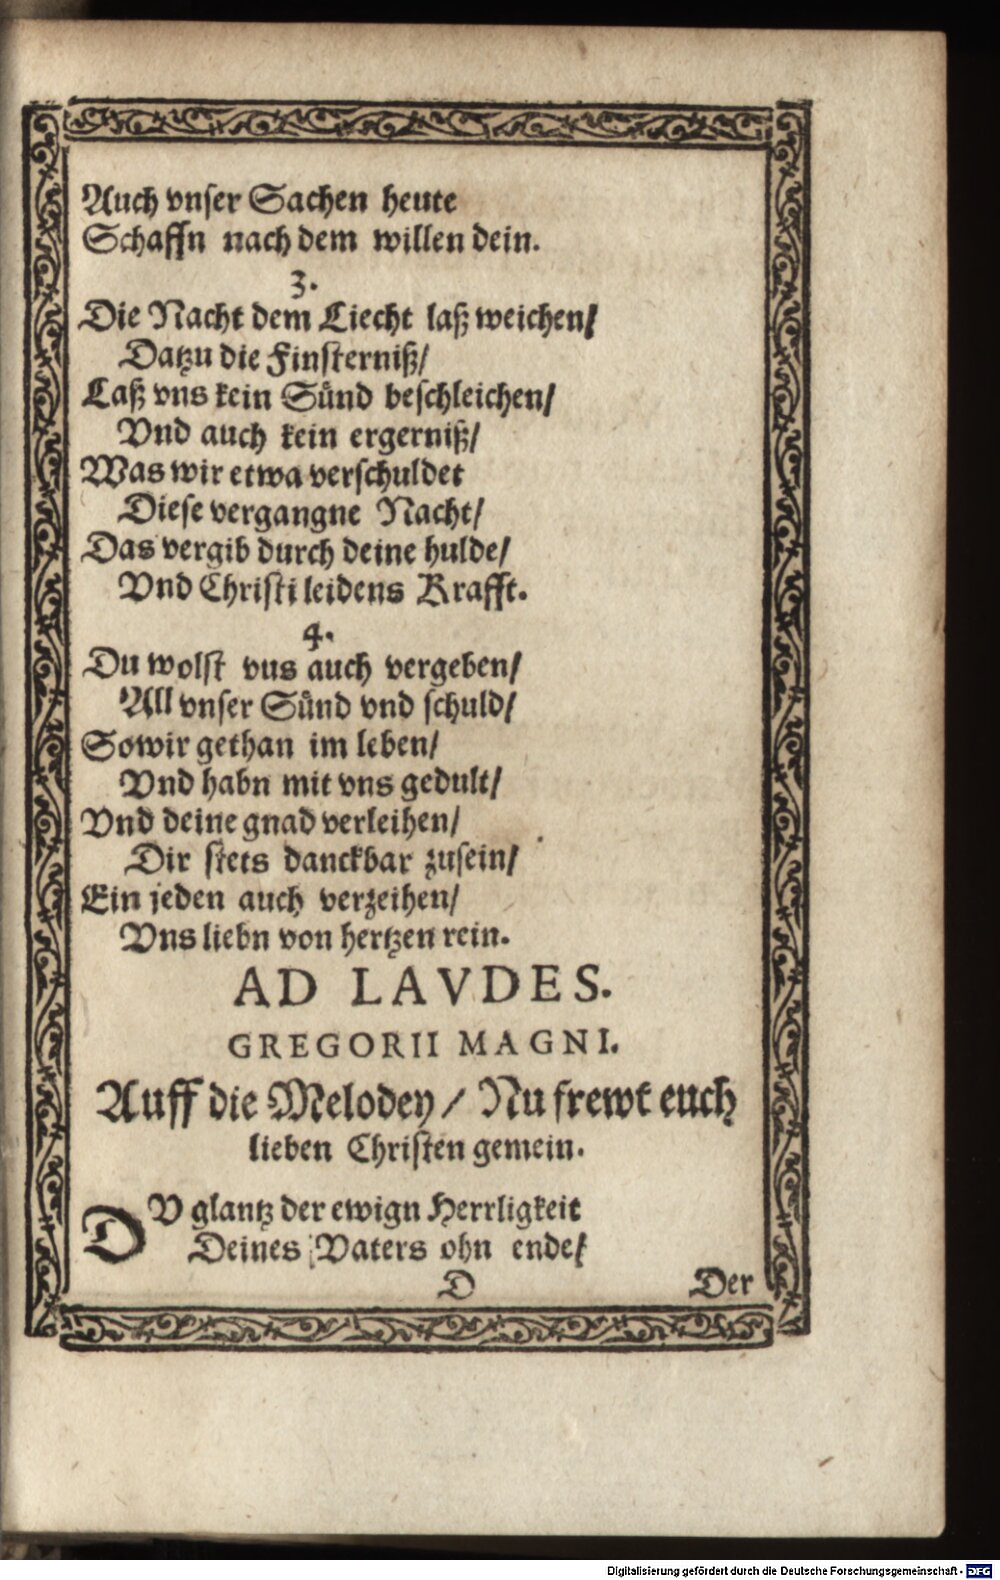 Auch vnser Sachen heute
Schaffn nach dem willen dein.
3.
Die Nacht dem Liecht laß weichen/
Datzu die Finsterniß/
Laß vns kein Sünd beschleichen/
Vnd auch kein ergerniß/
Was wir etwa verschuldet
Diese vergangne Nacht/
Das vergib durch deine hulde/
Vnd Christi leidens Krafft.
4.
Du wolst vus auch vergeben/
All vnser Sünd vnd schuld/
So wir gethan im leben/
Vnd habn mit vns gedult/
Vnd deine gnad verleihen/
Dir stets danckbar zusein/
Ein jeden auch verzeihen/
Vns liebn von hertzen rein.
AD LAVDES.
GREGORII MAGNI.
Auff die Melodey / Nu frewt euch
lieben Christen gemein.
DV glantz der ewign Herrligkeit
Deines Vaters ohn ende/
D Der
Digitalisierung gefördert durch die Deutsche Forschungsgemeinschaft - DFG